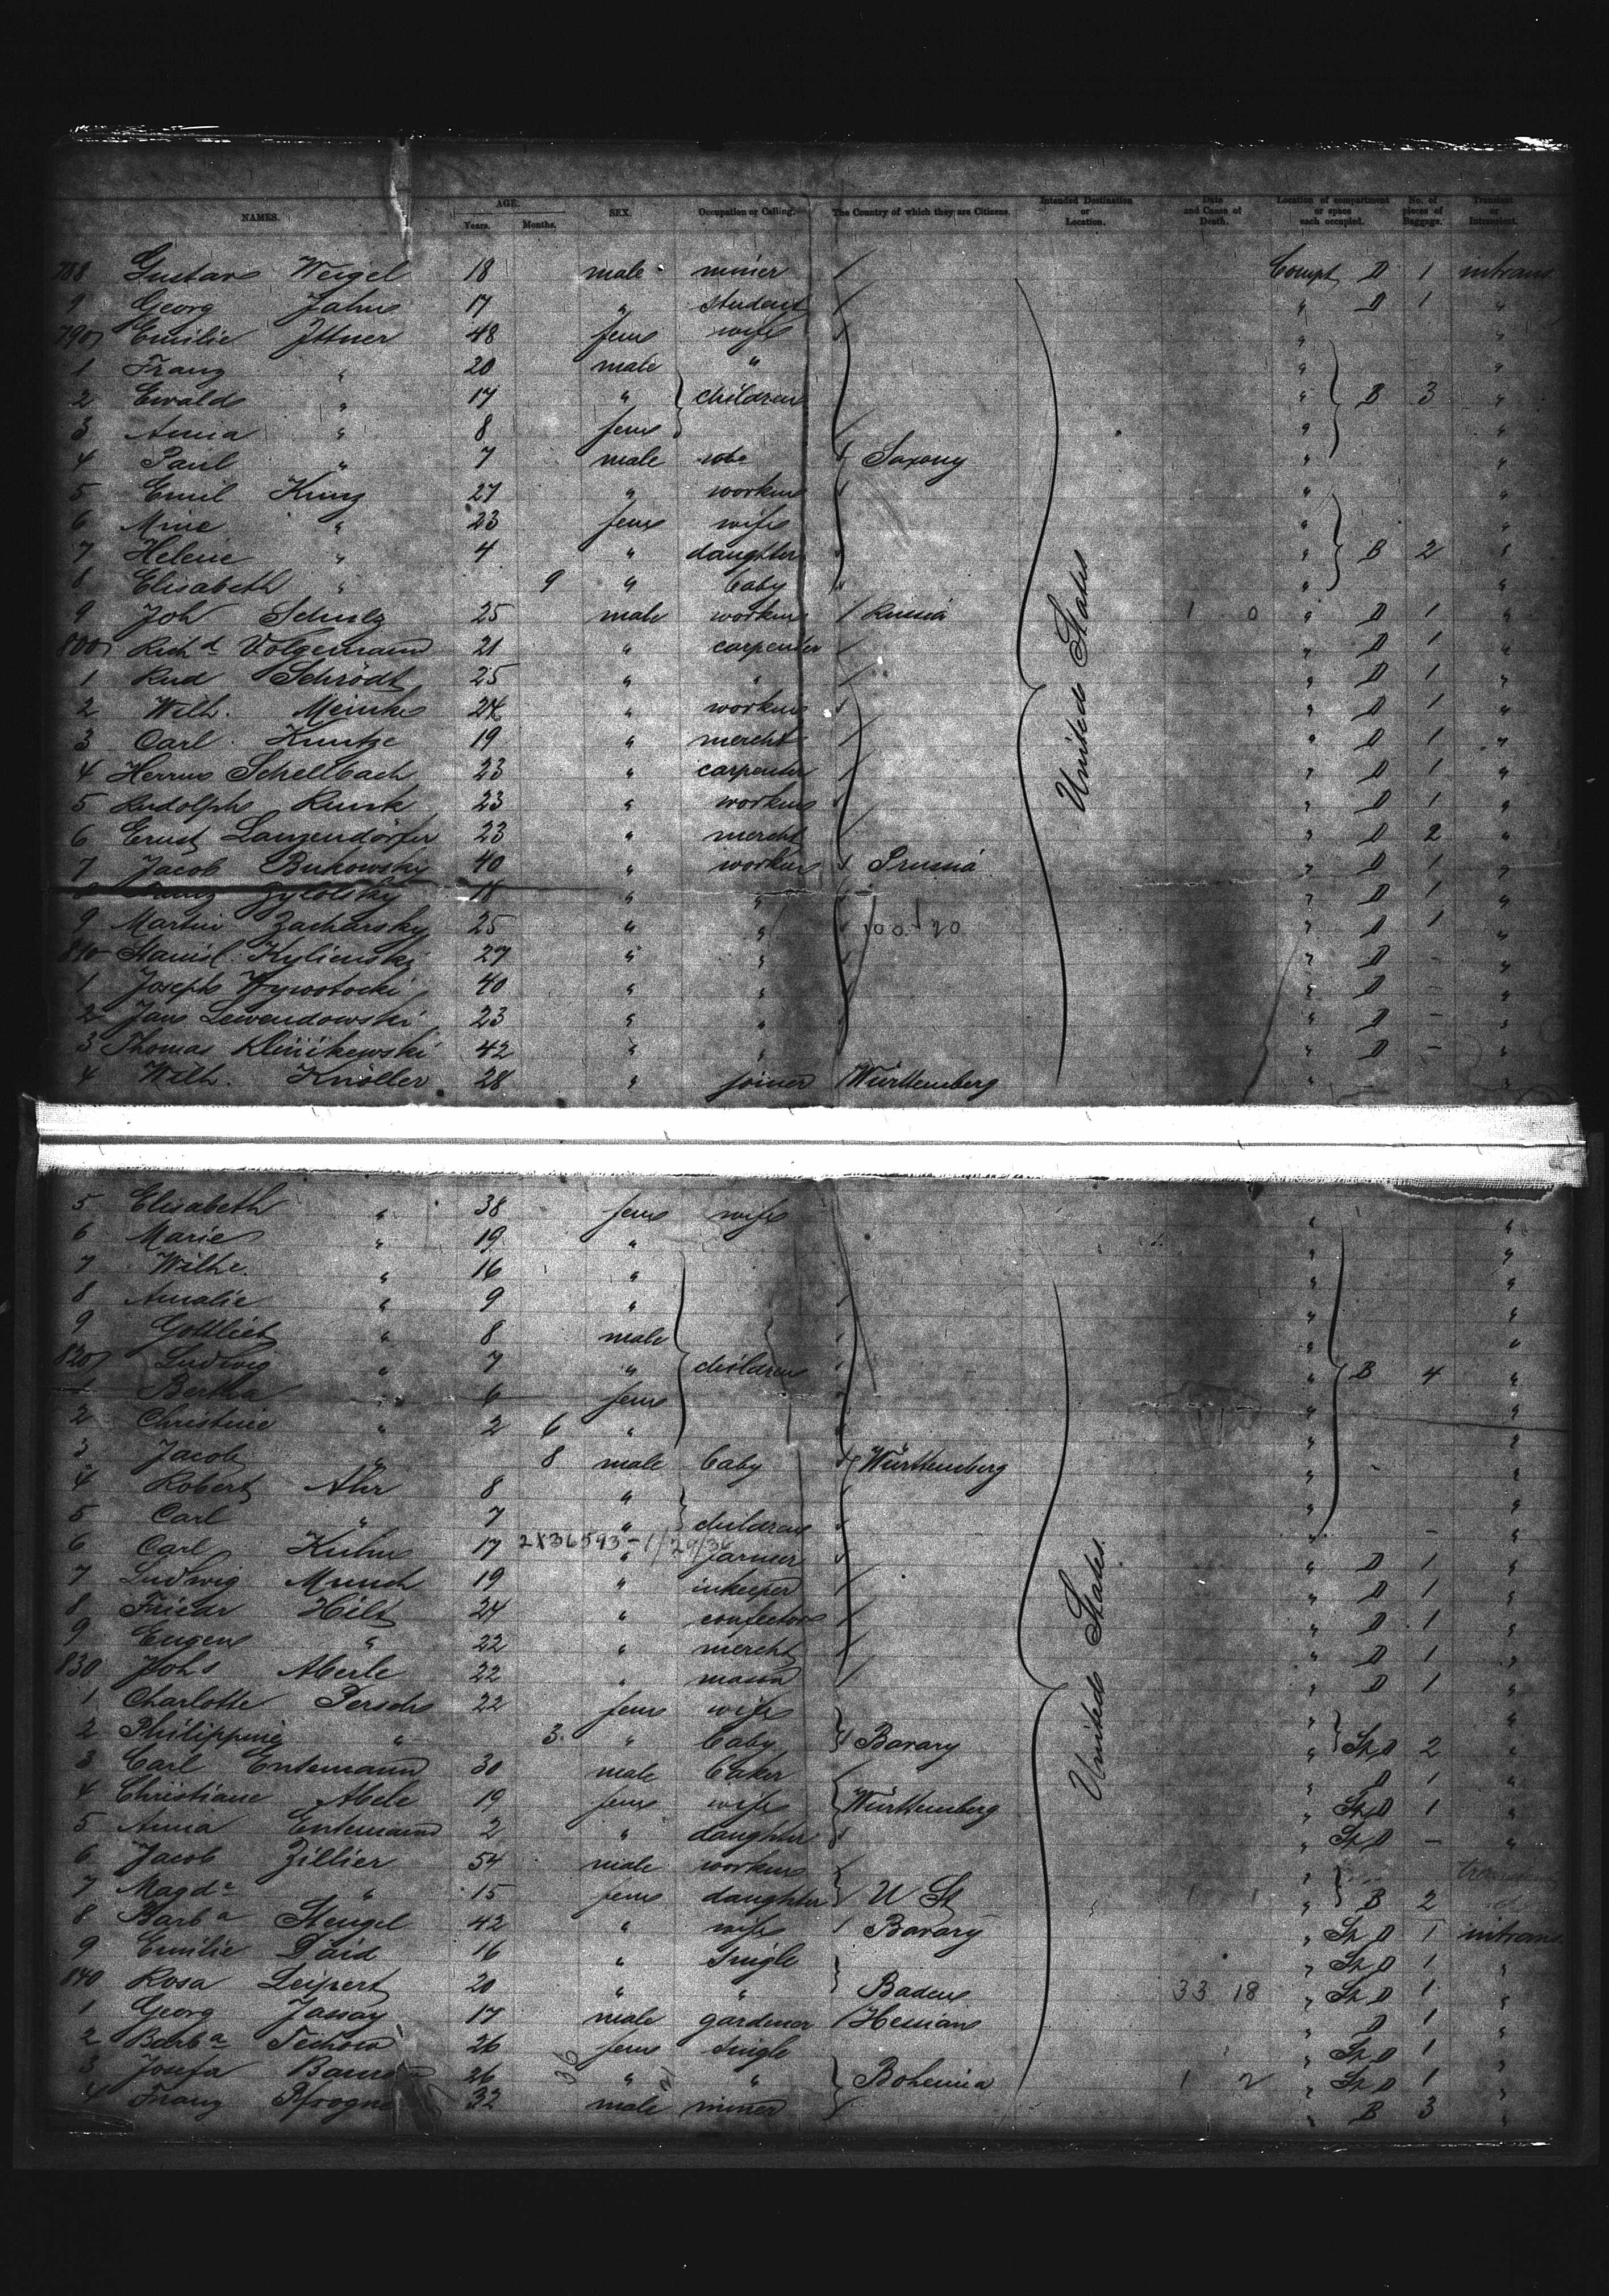 NAMES. AGE. Years. Months. SEX. Occupation or Calling. The Country of which they are Citizens. Intended Destination or Location. Date and Cause of Death. Location of compartment or space each occupied. No. of pieces of Baggage. Transient or Intransient.
788 Gustav Weigel 18 male miner Compt D 1 intrans
9 Georg Jahn 17 " student " D 1 "
790 Emilie Ittner 48 fem wife " "
1 Franz " 20 male " " "
2 Ewald " 17 " children " B 3 "
3 Anna " 8 fem " "
4 Paul " 7 male Saxony " "
5 Emil Kunz 27 " workm " "
6 Mine " 23 fem wife " "
7 Helene " 4 " daughter " B 2 "
8 Elisabeth " 9 " baby " "
9 Joh Schulz 25 male workm Russia 1 0 " D 1 "
800 Richd Volgemann 21 " carpenter " D 1 "
1 Rud Schrödt 25 " " " D 1 "
2 Wilh. Meinke 24 " workm " D 1 "
3 Carl Kuntze 19 " mercht " D 1 "
4 Herm Schellbach 23 " carpenter " D 1 "
5 Rudolph Runk 23 " workm " D 1 "
6 Ernst Langendörfer 23 " mercht " D 2 "
7 Jacob Bukowsky 40 " workm Prussia " D 1 "
8 Zylolsky 18 " " " D 1 "
9 Martin Zacharsky 25 " " " D 1 "
810 Stanisl. Kylienski 27 " " " D - "
1 Joseph Wysotocki 40 " " " D - "
2 Jan Lewendowski 23 " " " D - "
3 Thomas Klinikewski 42 " " " D - "
4 Wilh. Knöller 28 " joiner Württemberg " "
United States
5 Elisabeth " 38 fem wife " "
6 Marie " 19 " " "
7 Wilhe. " 16 " " "
8 Amalie " 9 " " "
9 Gottlieb " 8 male " "
820 Ludwig " 7 " children " B 4 "
1 Bertha " 6 fem " "
2 Christine " 2 6 " " "
3 Jacob " 8 male baby Württemberg " "
4 Robert Ahr 8 " " "
5 Carl " 7 " children " - "
6 Carl Kuhn 17 2X36593-1/29/36 " farmer " D 1 "
7 Ludwig Munch 19 " inkeeper " D 1 "
8 Hilt 24 " confection " D 1 "
9 Eugen " 22 " mercht " D 1 "
830 Johs Aberle 22 " mason " D 1 "
1 Charlotte Persch 22 fem wife " "
2 Philippine " 3 " baby Bavary " St D 2 "
3 Carl Entemann 30 male baker " D 1 "
4 Christiane Abele 19 fem wife Württemberg " St D 1 "
5 Anna Entemann 2 " daughter " St D - "
6 Jacob Zillier 54 male workm "
7 Magda " 15 fem daughter U St 1 1 " B 2
8 Barba Stengel 42 " wife Bavary " St D 1 intrans
9 Emilie Daid 16 " single " St D 1 "
840 Rosa Leipert 20 " " Baden 33 18 " St D 1 "
1 Georg Jassoy 17 male gardener Hessian " D 1 "
2 Barba Techow 26 fem single " St D 1 "
3 Josefa 26 " " Bohemia 1 2 " St D 1 "
4 Franz 32 male miner " B 3 "
United States.